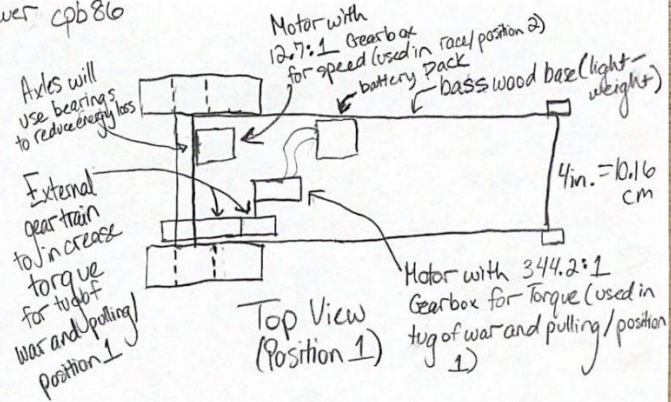 cpb86
Motor with
12.7:1 Gearbox
for speed (used in race/position 2)
battery pack
basswood base (light-
weight)
Axles will
use bearings
to reduce energy loss
External
gear train
to increase
torque
for tug of
war and pulling/
position 1
4in. = 10.16
cm
Motor with 344.2:1
Gearbox for Torque (used in
tug of war and pulling/position
1)
Top View
(Position 1)